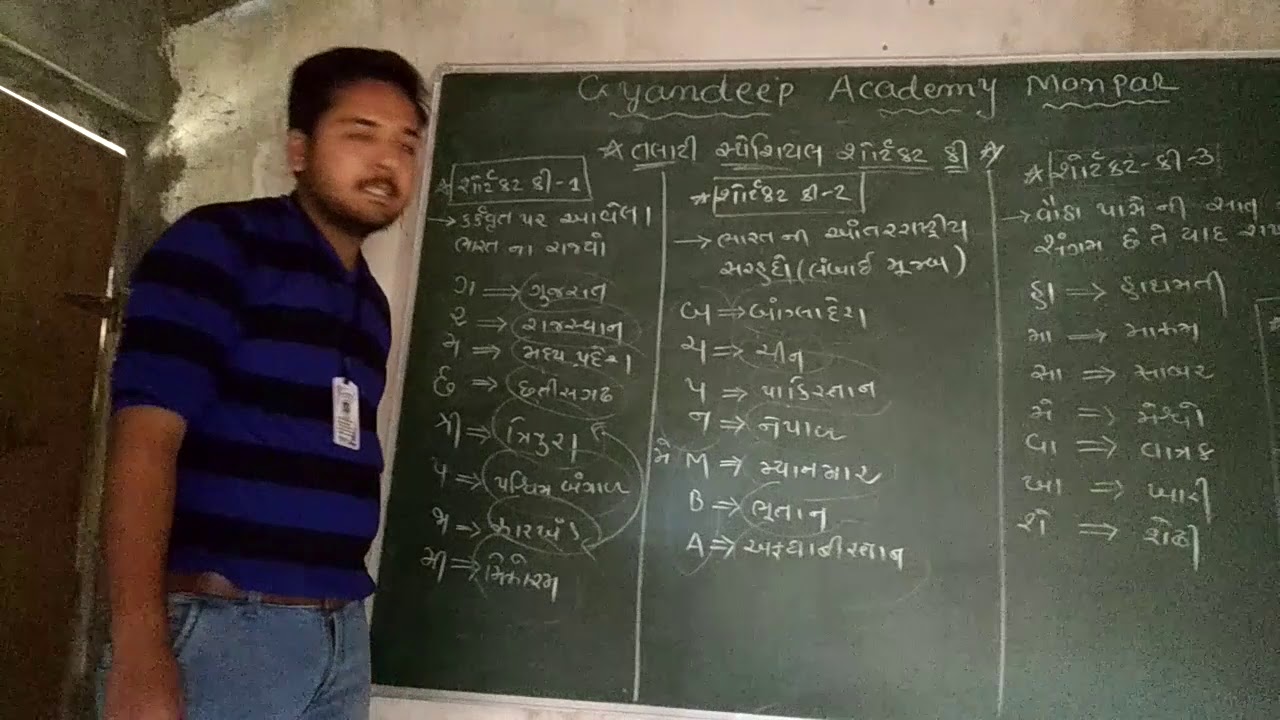 Gyandeep Academy Monpar
☆ તલાટી સ્પેશિયલ શોર્ટકટ કી ☆
* શોર્ટકટ કી-1
→ કર્કવૃત પર આવેલા
ભારત ના રાજ્યો
ગ ⇒ ગુજરાત
ર ⇒ રાજસ્થાન
મ ⇒ મધ્ય પ્રદેશ
છ ⇒ છતીસગઢ
ત્રી ⇒ ત્રિપુરા
પ ⇒ પશ્ચિમ બંગાળ
ઝ ⇒ ઝારખંડ
મી ⇒ મિઝોરમ
* શોર્ટકટ કી-2
→ ભારત ની આંતરરાષ્ટ્રીય
સરહદો (લંબાઈ મુજબ)
બ ⇒ બાંગ્લાદેશ
ચ ⇒ ચીન
પ ⇒ પાકિસ્તાન
ન ⇒ નેપાળ
મે M ⇒ મ્યાનમાર
B ⇒ ભૂતાન
A ⇒ અફઘાનીસ્તાન
* શોર્ટકટ-કી-3
→ વૌઠા પાસે ની સાત
સંગમ છે તે યાદ
હા ⇒ હાથમતી
મા ⇒ માઝમ
સા ⇒ સાબર
મે ⇒ મેશ્વો
વા ⇒ વાત્રક
ખા ⇒ ખારી
શે ⇒ શેઢી